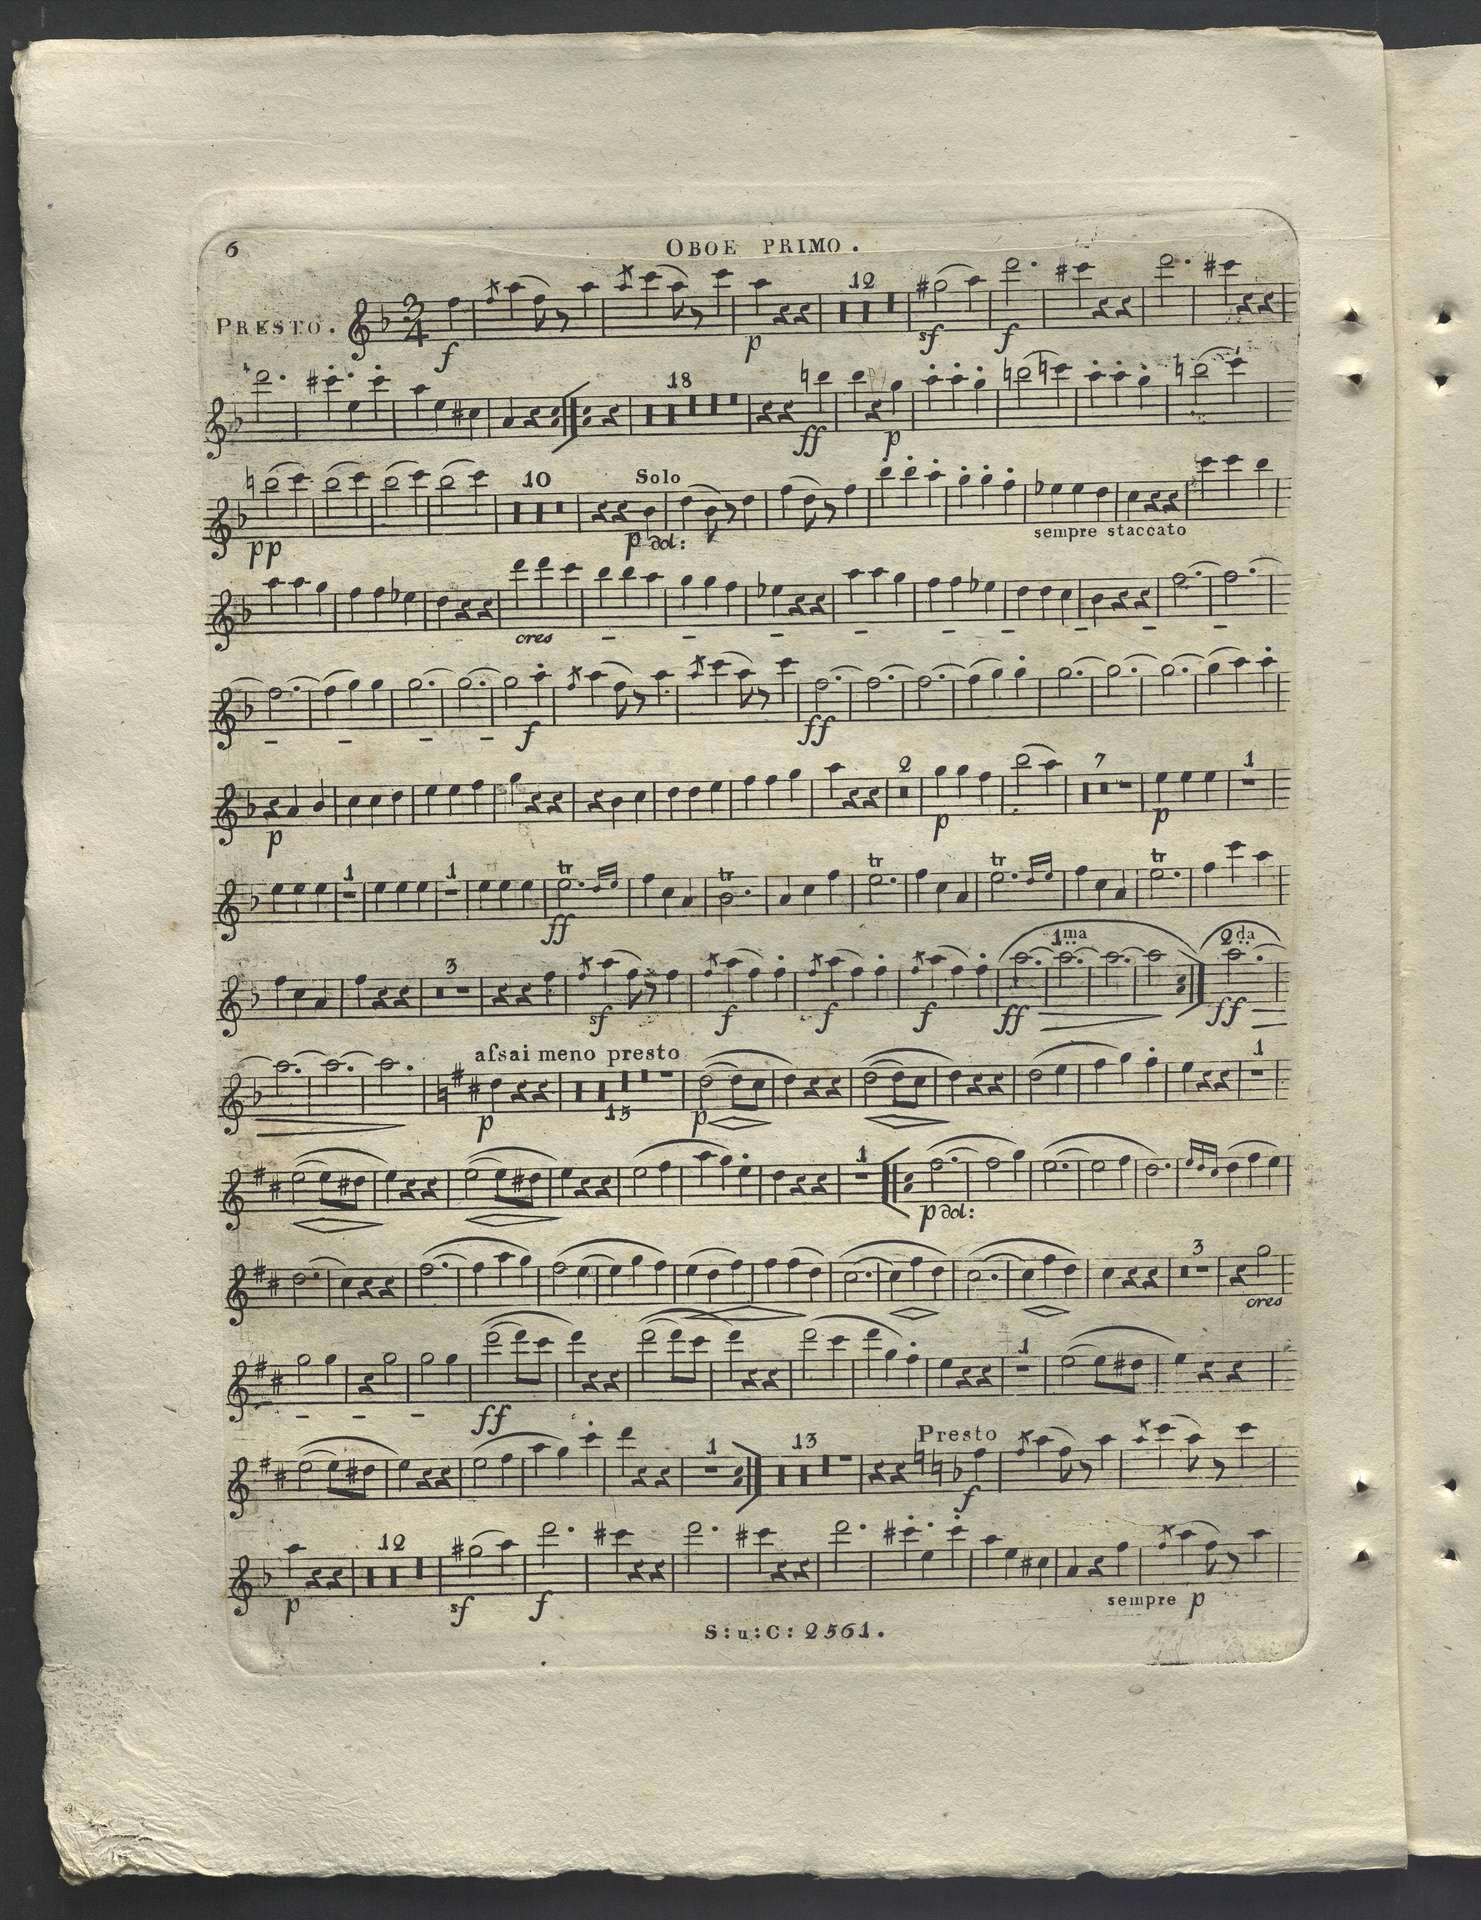 6
OBOE PRIMO.
PRESTO. 3/4 12
f p sf f
18
ff p
10 Solo
pp p dol: sempre staccato
cres - - - - - - - - -
- - - - f ff
2 7 1
p p p
1 1 tr tr tr tr tr
ff
3 1ma 2da
sf f f f ff ff
aſsai meno presto 1
p 15 p
1
p dol:
3
cres
1
- - - ff
1 13 Presto
f
12
p sf f sempre p
S:u:C: 2561.